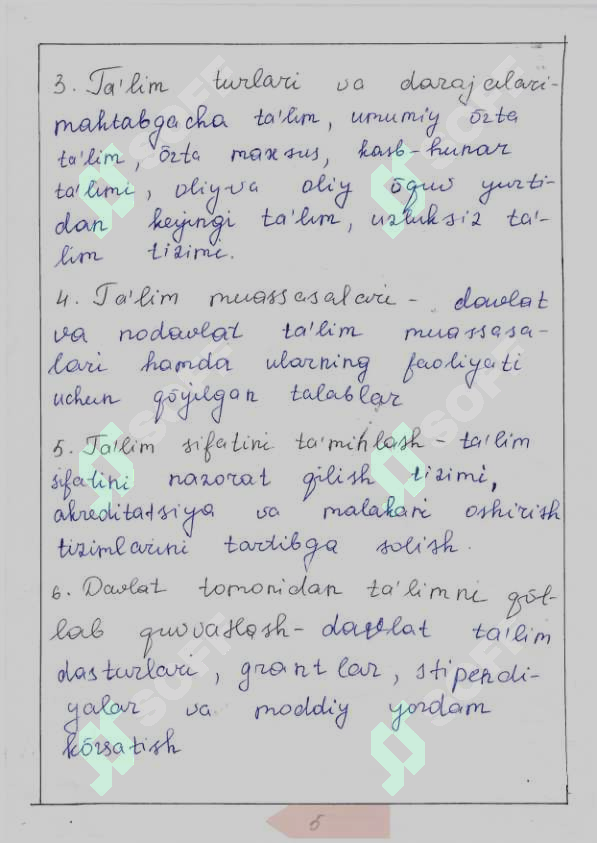 3. Ta'lim turlari va darajalari-
mahtabgacha ta'lim, umumiy ōzta
ta'lim, ōzta maxsus, kasb-hunar
ta'limi, oliy-va oliy ōquv yurti-
dan keyingi ta'lim, uzluksiz ta'-
lim tizimi.
4. Ta'lim muassasalari - davlat
va nodavlat ta'lim muassasa-
lari hamda ularning faoliyati
uchun qōyilgan talablar
5. Ta'lim sifatini ta'minlash - ta'lim
sifatini nazorat qilish tizimi,
akreditatsiya va malakani oshirish
tizimlarini tartibga solish.
6. Davlat tomonidan ta'limni qōl-
lab quvvatlash - davlat ta'lim
dasturlari, grantlar, stipendi-
yalar va moddiy yordam
kōrsatish
5
SOFF
SOFF
SOFF
SOFF
SOFF
SOFF